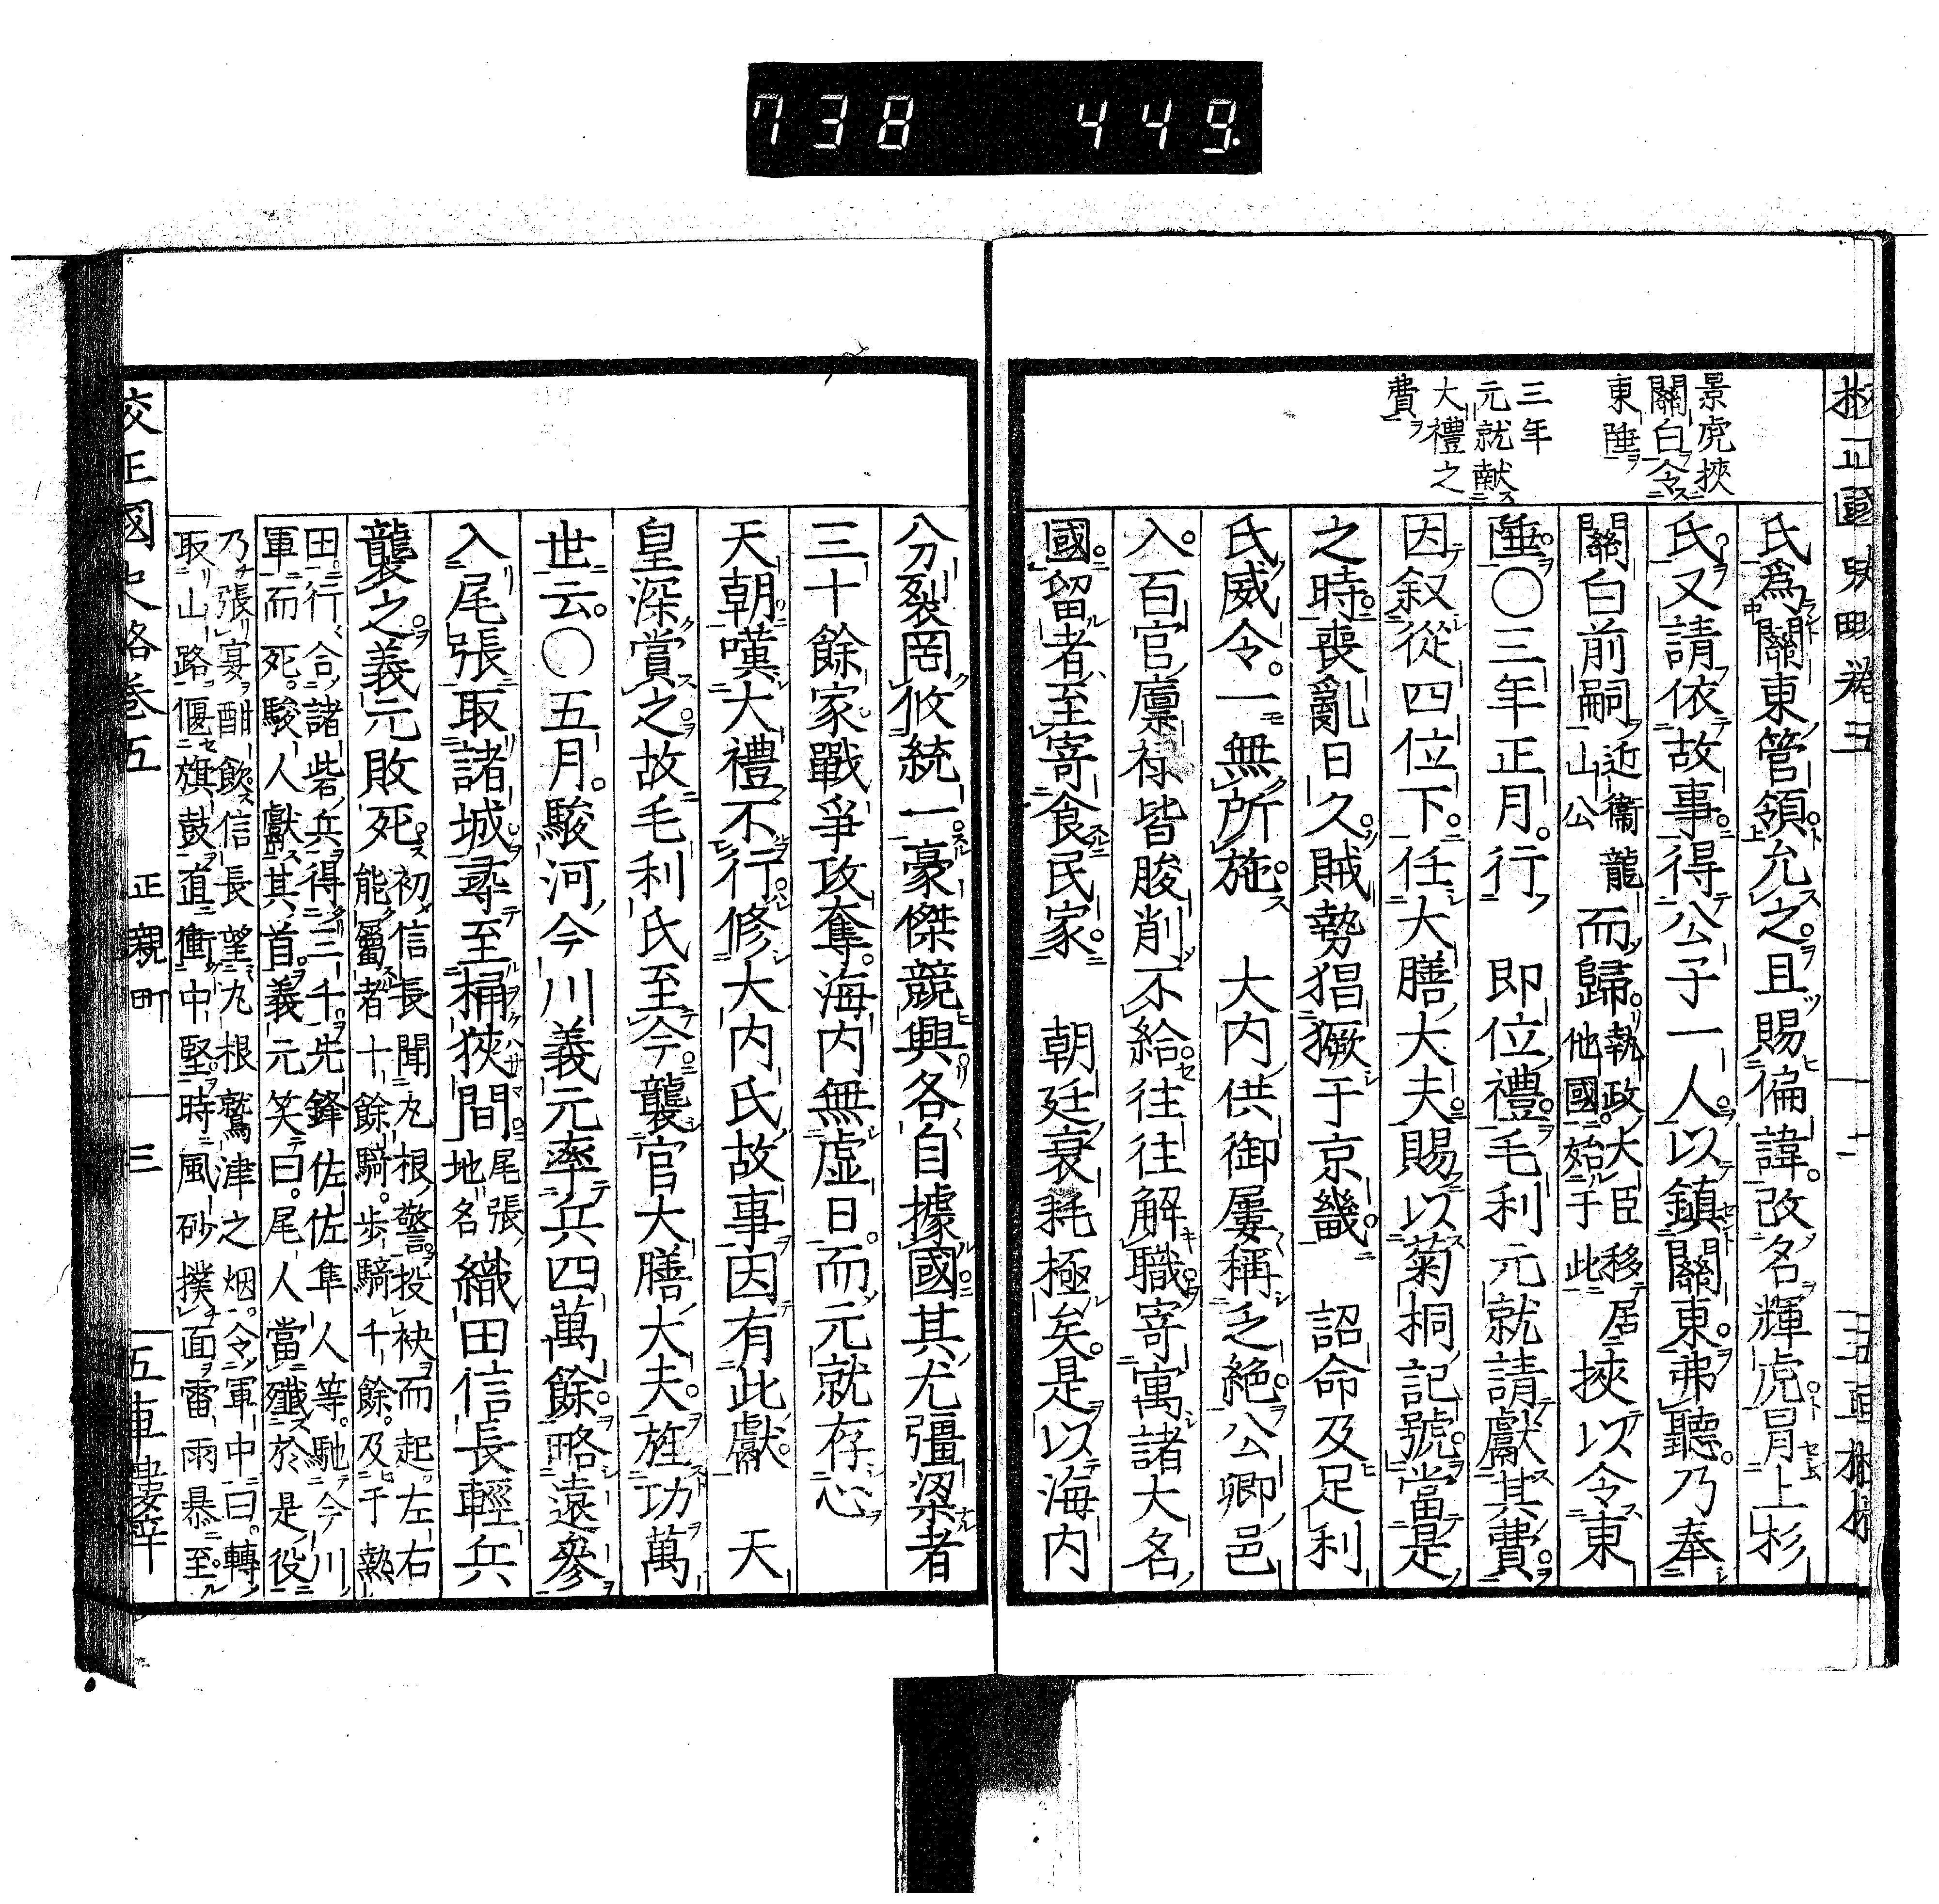 738 449
校正國史略卷五
景虎挾
關白令
東陲
三年
元就獻
大禮之
費
氏爲關東管領允之且賜偏諱改名輝虎冒上杉
氏又請依故事得公子一人以鎮關東弗聽乃奉
關白前嗣近衞龍山公而歸執政大臣移居他國始于此挾以令東
陲〇三年正月行　即位禮毛利元就請獻其費
因叙從四位下任大膳大夫賜以菊桐記號當是
之時喪亂日久賊勢猖獗于京畿　詔命及足利
氏威令一無所施　大内供御屢稱乏絶公卿邑
入百官廩祿皆朘削不給往往解職寄寓諸大名
國留者至寄食民家　朝廷衰耗極矣是以海内
分裂罔攸統一豪傑競興各自據國其尤彊梁者
三十餘家戰爭攻奪海内無虚日而元就存心
天朝嘆大禮不行修大内氏故事因有此獻　天
皇深賞之故毛利氏至今襲官大膳大夫旌功萬
世云〇五月駿河今川義元率兵四萬餘略遠參
入尾張取諸城尋至桶狹間尾張地名織田信長輕兵
襲之義元敗死初信長聞丸根警投袂而起左右能屬者十餘騎歩騎千餘及于熱
田行合諸砦兵得三千先鋒佐佐隼人等馳今川軍而死駿人獻其首義元笑曰尾人當殲於是役
乃張宴酣飮信長望丸根鷲津之烟令軍中曰轉取山路偃旗鼓直衝中堅時風砂撲面雷雨暴至
校正國史略卷五　正親町　三　五車樓梓